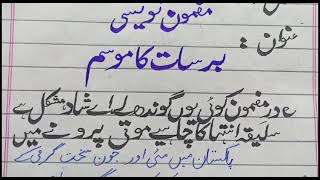 مضمون نویسی
عنوان:
برسات کا موسم
مضمون کوئی یوں گوندھ لے اے شاد مشکل ہے
سلیقہ انتہا کا چاہیے موتی پرونے میں
پاکستان میں مئی اور جون سخت گرمی کے